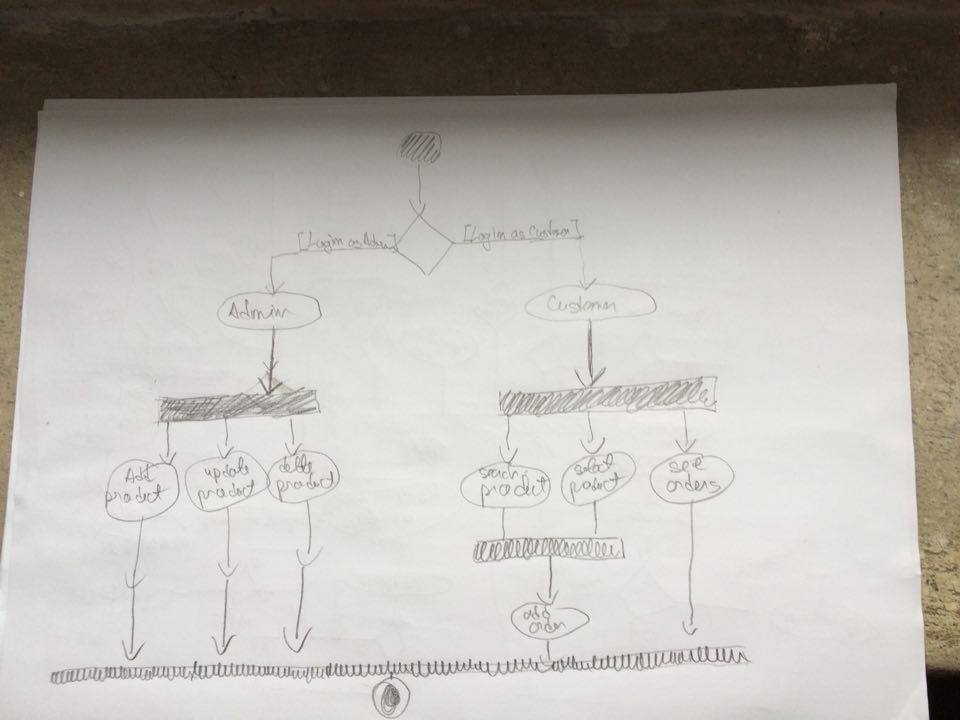 [Login as Admin]
[Login as Customer]
Admin
Customer
Add
product
update
product
delte
product
search
product
select
product
see
orders
add
order